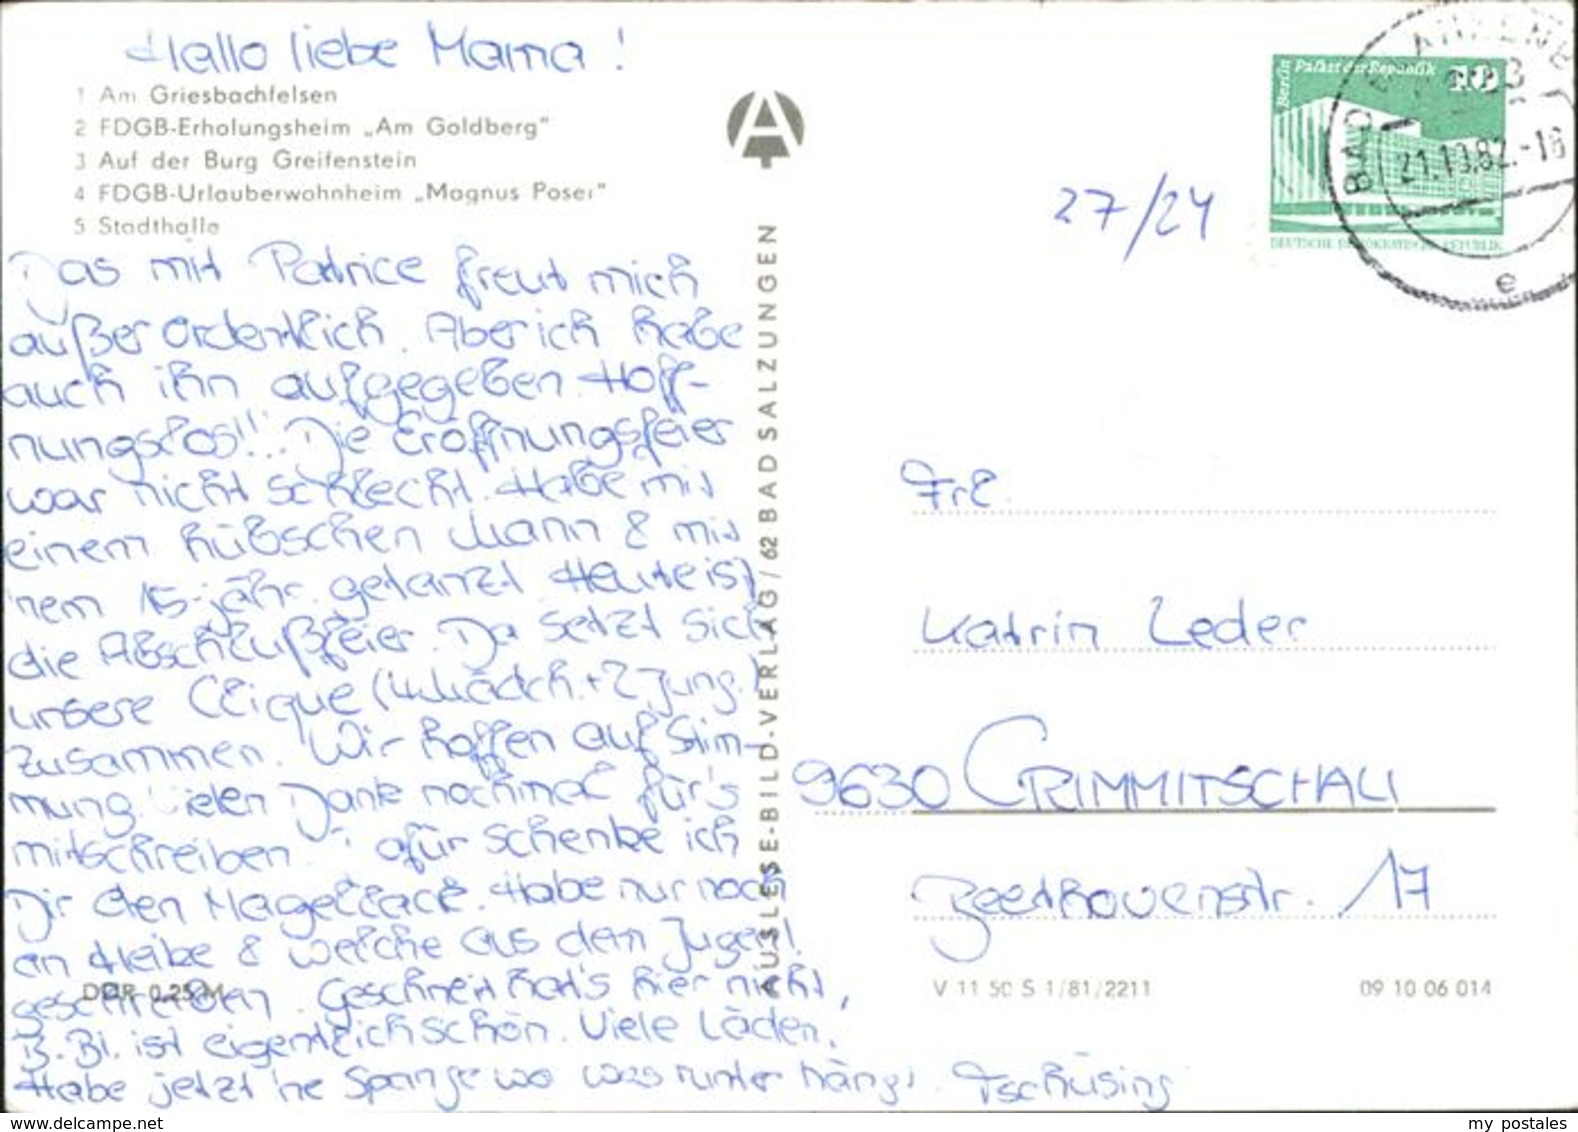 Hallo liebe Mama!
1 Am Griesbachfelsen
2 FDGB-Erholungsheim „Am Goldberg"
3 Auf der Burg Greifenstein
4 FDGB-Urlauberwohnheim „Magnus Poser"
5 Stadthalle
Das mit Patrice freut mich
außerordentlich. Aber ich habe
auch ihn aufgegeben. Hoff-
nungslos!!. Die Eröffnungsfeier
war nicht schlecht. Habe mit
einem hübschen Mann & mit
'nem 15-jähr. getanzt. Heute ist
die Abschlußfeier. Da setzt sich
unsere Clique (4 Mädch. + 2 Jung.)
zusammen. Wir hoffen auf Stim-
mung. Vielen Dank nochmal für's
mitschreiben. Dafür schenke ich
Dir den Nagellack. Habe nur noch
an Heike & welche aus dem Jugendl.
geschrieben. Geschneit hat's hier nicht,
B.-Bl. ist eigentlich schön. Viele Läden.
Habe jetzt 'ne Spange wo was runter hängt. Tschüsing
DDR 0,25 M
AUSLESE-BILD-VERLAG / 62 BAD SALZUNGEN
27/24
Berlin Palast der Republik 10
DEUTSCHE DEMOKRATISCHE REPUBLIK
BAD BLANKENB
21.10.82.-16
e
Frl.
Katrin Leder
9630 CRIMMITSCHAU
Beethovenstr. 17
V 11 50 S 1/81/2211
09 10 06 014
www.delcampe.net
my_postales